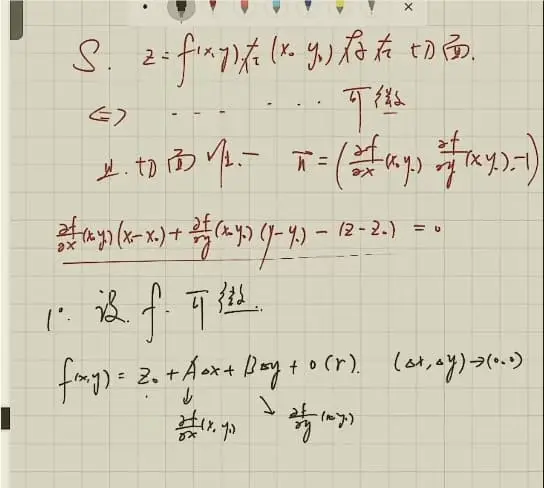 S. z=f(x,y)在(x₀ y₀)存在切面.
⇔ - - - · · · 可微
且切面唯一 n⃗=(∂f/∂x(x₀,y₀) ∂f/∂y(x₀y₀),-1)
∂f/∂x(x₀y₀)(x-x₀)+∂f/∂y(x₀y₀)(y-y₀)-(z-z₀)=0
1°. 设 f 可微.
f(x,y)=z₀+AΔx+BΔy+o(r). (Δx,Δy)→(0,0)
↓ ↘
∂f/∂x(x₀,y₀) ∂f/∂y(x₀y₀)